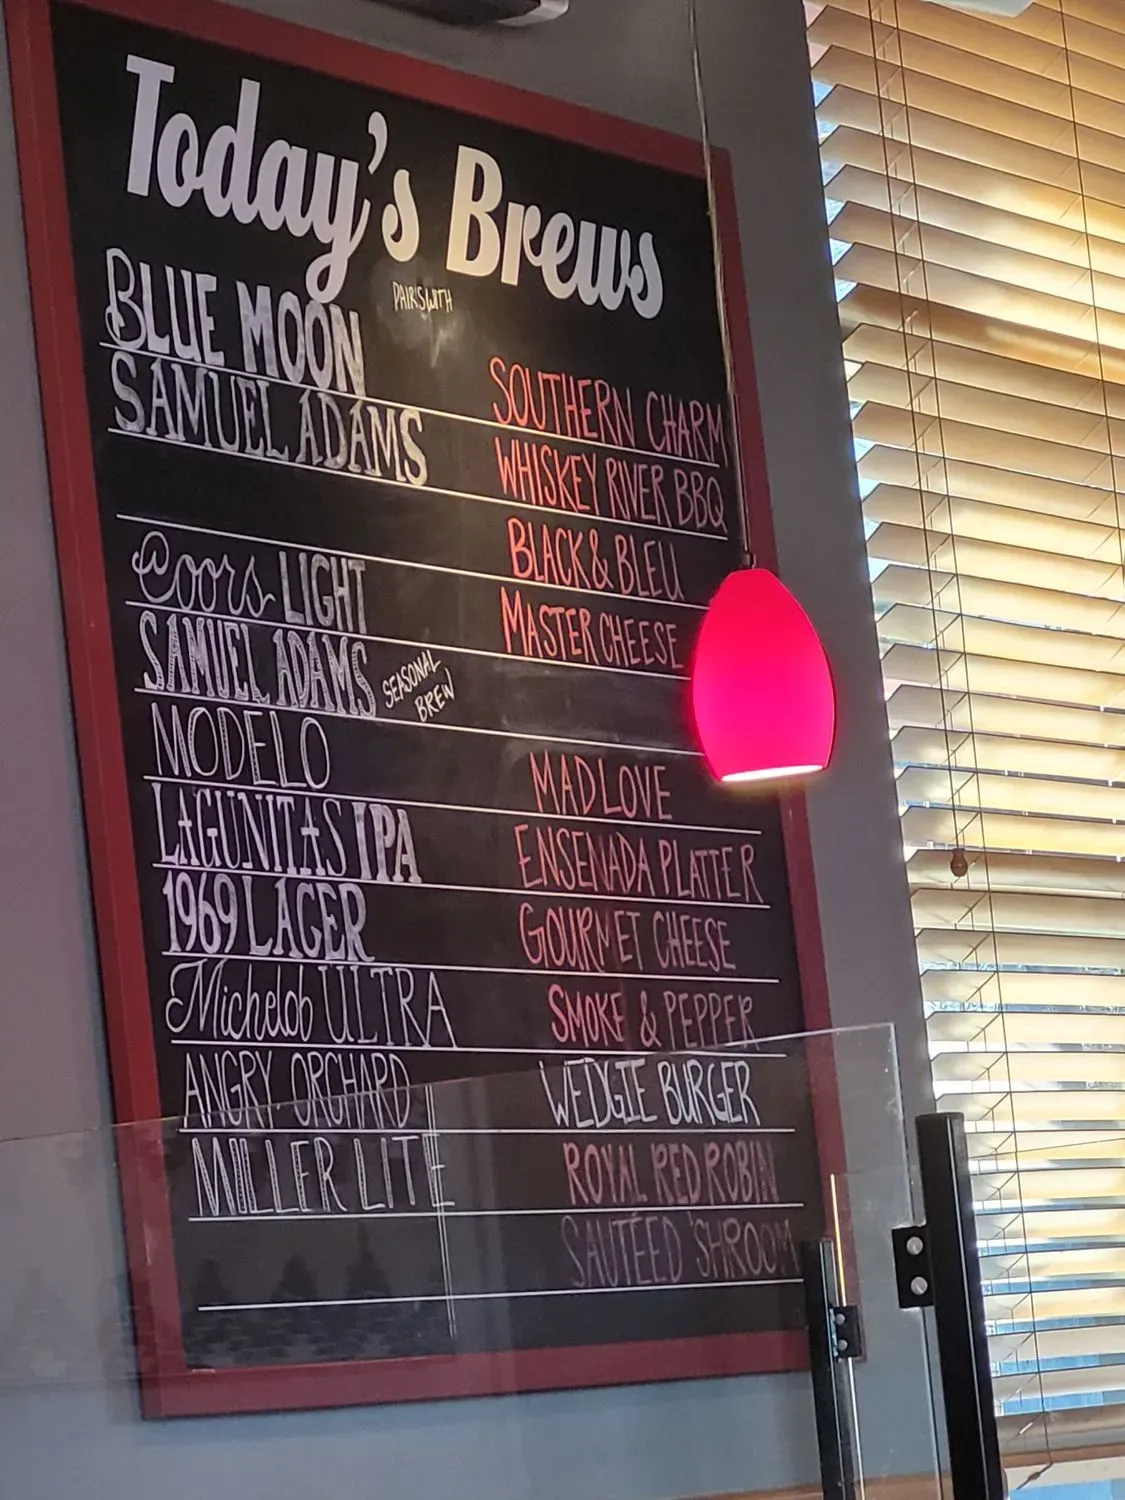 Today's Brews
PAIRS WITH
BLUE MOON SOUTHERN CHARM
SAMUEL ADAMS WHISKEY RIVER BBQ
BLACK & BLEU
Coors LIGHT MASTER CHEESE
SAMUEL ADAMS SEASONAL BREW
MODELO MAD LOVE
LAGUNITAS IPA ENSENADA PLATTER
1969 LAGER GOURMET CHEESE
Michelob ULTRA SMOKE & PEPPER
ANGRY ORCHARD WEDGIE BURGER
MILLER LITE ROYAL RED ROBIN
SAUTÉED 'SHROOM